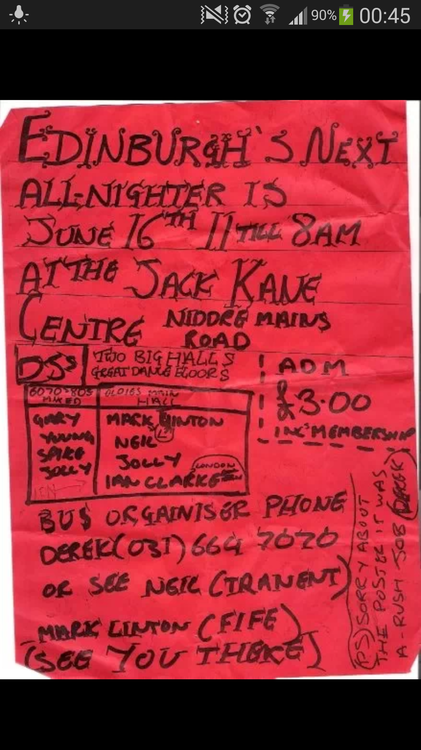 90% 00:45
EDINBURGH'S NEXT
ALL-NIGHTER IS
JUNE 16TH 11 TILL 8AM
AT THE JACK KANE
CENTRE NIDDRE MAINS
ROAD
DJS TWO BIG HALLS
GREAT DANCE FLOORS
ADM
£3.00
INC' MEMBERSHIP
60 70 + 80S
MIXED
OLDIES MAIN
HALL
GARY
YOUNG
SPIKE
JOLLY
MARK LINTON
NEIL
JOLLY
IAN CLARKE LONDON
BUS ORGAINISER PHONE
DEREK (031) 664 7070
OR SEE NEIL (TRANENT)
MARK LINTON (FIFE)
(SEE YOU THERE)
(PS) SORRY ABOUT
THE POSTER IT WAS
A-RUSH JOB (DEREK)